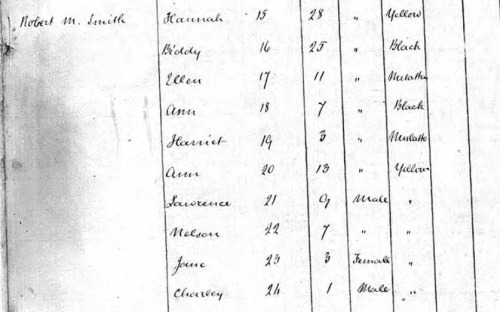 Robert M. Smith Hannah 15 28 " Yellow
Biddy 16 25 " Black
Ellen 17 11 " Mulatto
Ann 18 7 " Black
Harriet 19 3 " Mulatto
Ann 20 13 " Yellow
Lawrence 21 9 Male "
Nelson 22 7 " "
Jane 23 3 Female "
Charley 24 1 Male "